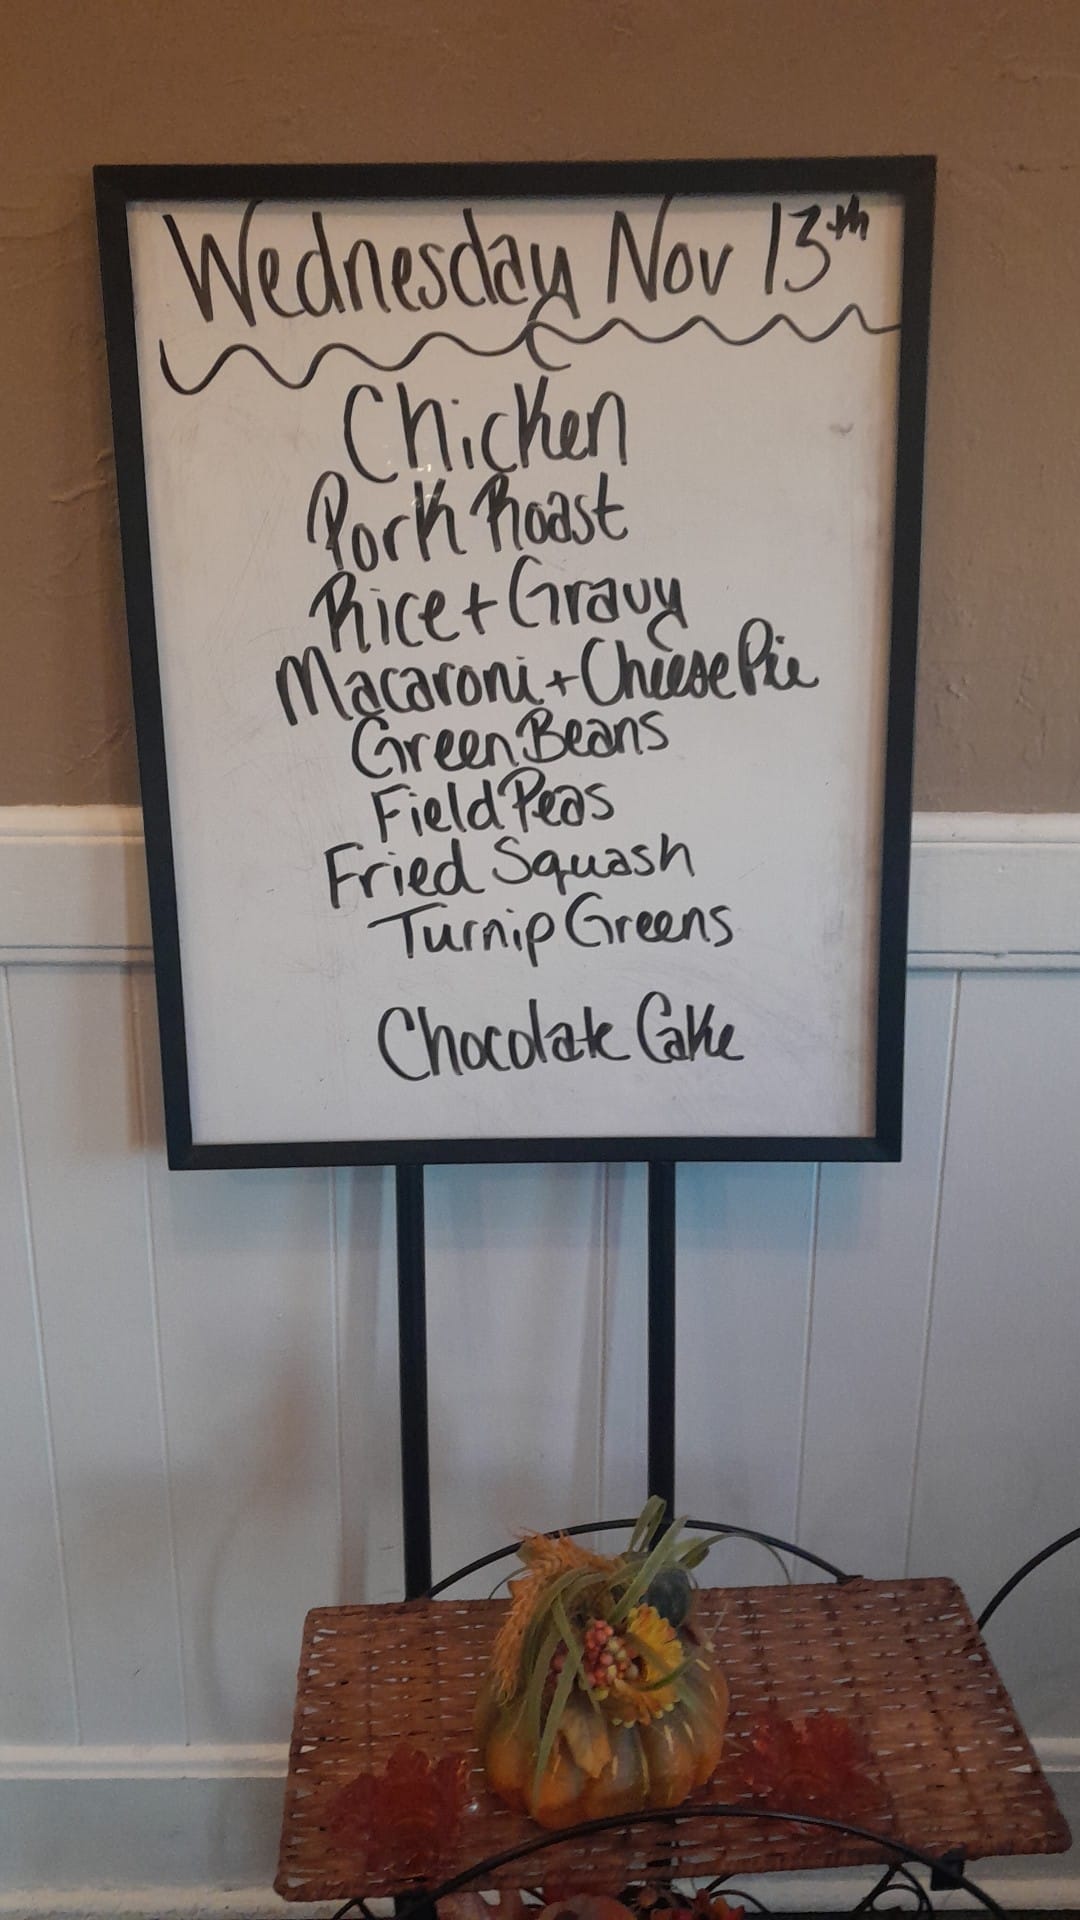 Wednesday Nov 13th
Chicken
Pork Roast
Rice + Gravy
Macaroni + Cheese Pie
Green Beans
Field Peas
Fried Squash
Turnip Greens
Chocolate Cake